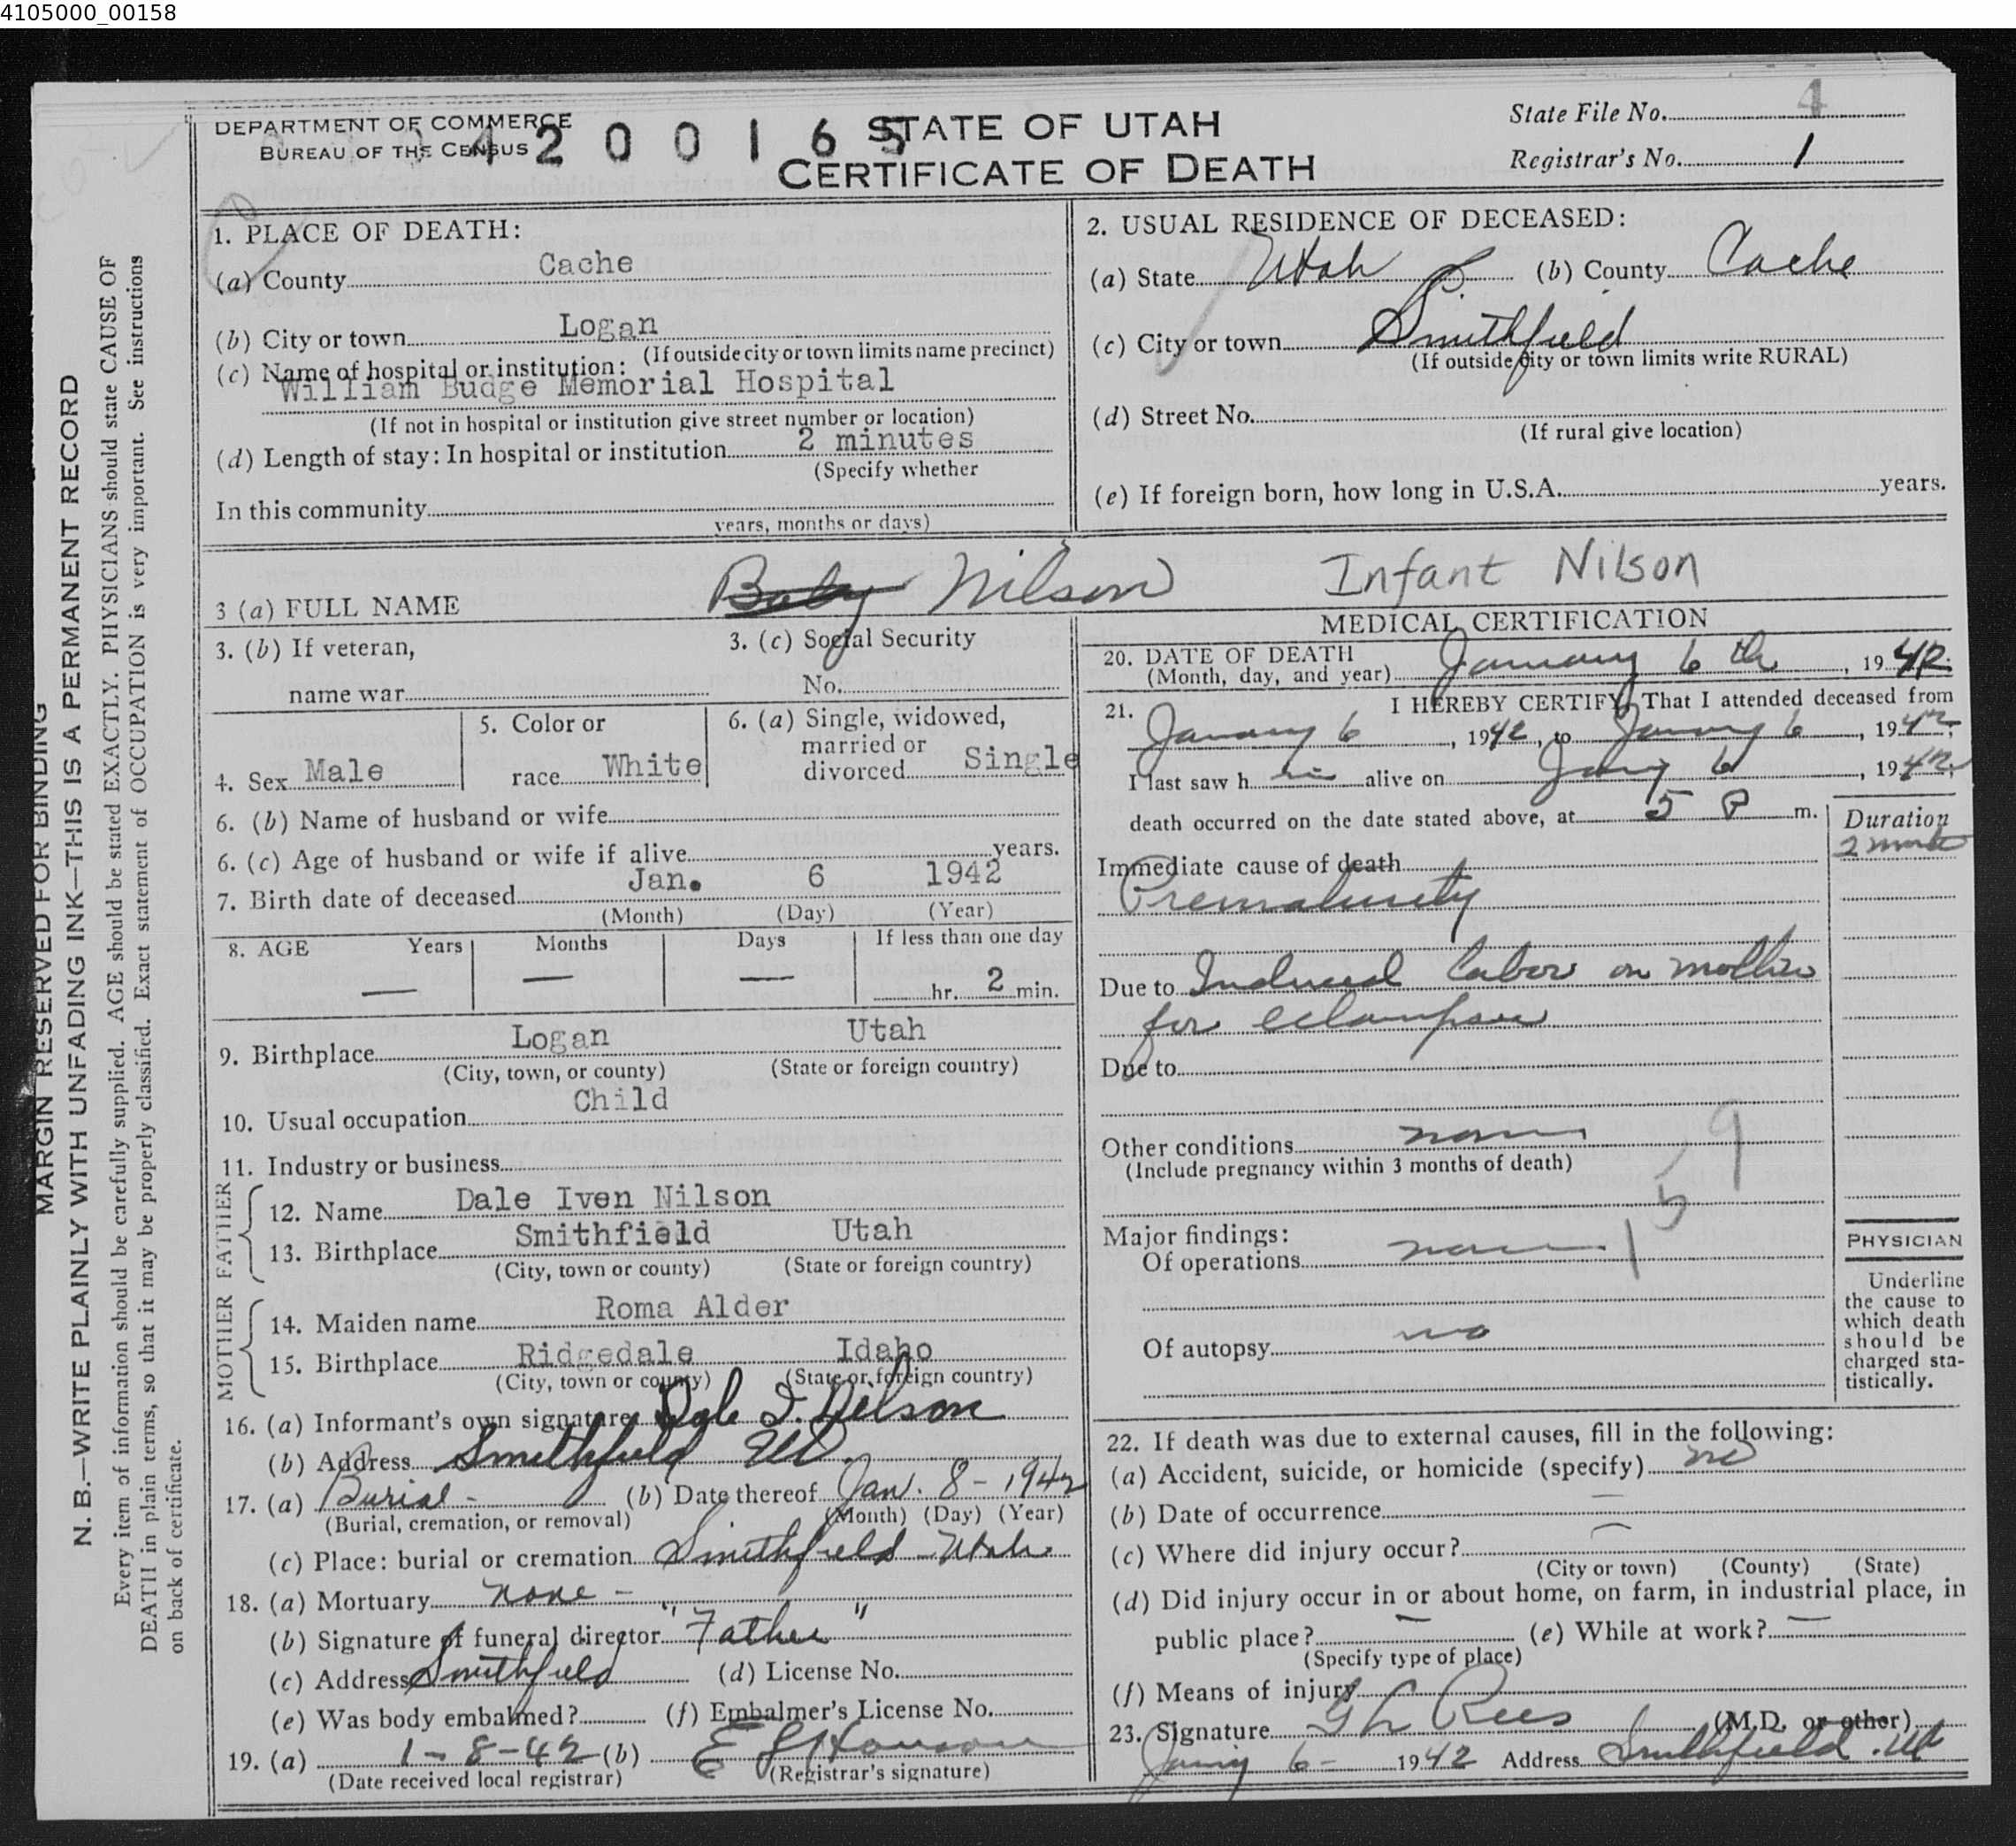 4105000_00158
DEPARTMENT OF COMMERCE
BUREAU OF THE CENSUS
4200165
STATE OF UTAH
CERTIFICATE OF DEATH
State File No. 4
Registrar's No. 1
MARGIN RESERVED FOR BINDING
N. B.—WRITE PLAINLY WITH UNFADING INK—THIS IS A PERMANENT RECORD
Every item of information should be carefully supplied. AGE should be stated EXACTLY. PHYSICIANS should state CAUSE OF
DEATH in plain terms, so that it may be properly classified. Exact statement of OCCUPATION is very important. See instructions
on back of certificate.
1. PLACE OF DEATH:
(a) County Cache
(b) City or town Logan
(If outside city or town limits name precinct)
(c) Name of hospital or institution:
William Budge Memorial Hospital
(If not in hospital or institution give street number or location)
(d) Length of stay: In hospital or institution 2 minutes
(Specify whether
In this community
years, months or days)
2. USUAL RESIDENCE OF DECEASED:
(a) State Utah (b) County Cache
(c) City or town Smithfield
(If outside city or town limits write RURAL)
(d) Street No.
(If rural give location)
(e) If foreign born, how long in U.S.A. years.
3 (a) FULL NAME Baby Nilson Infant Nilson
3. (b) If veteran,
name war
3. (c) Social Security
No.
4. Sex Male
5. Color or
race White
6. (a) Single, widowed,
married or
divorced Single
6. (b) Name of husband or wife
6. (c) Age of husband or wife if alive years.
7. Birth date of deceased Jan. 6 1942
(Month) (Day) (Year)
8. AGE Years Months Days If less than one day
— — — hr. 2 min.
9. Birthplace Logan Utah
(City, town, or county) (State or foreign country)
10. Usual occupation Child
11. Industry or business
FATHER
12. Name Dale Iven Nilson
13. Birthplace Smithfield Utah
(City, town or county) (State or foreign country)
MOTHER
14. Maiden name Roma Alder
15. Birthplace Ridgedale Idaho
(City, town or county) (State or foreign country)
16. (a) Informant's own signature Dale I. Nilson
(b) Address Smithfield Ut.
17. (a) Burial - (b) Date thereof Jan. 8 - 1942
(Burial, cremation, or removal) (Month) (Day) (Year)
(c) Place: burial or cremation Smithfield - Utah
18. (a) Mortuary none -
(b) Signature of funeral director "Father"
(c) Address Smithfield (d) License No.
(e) Was body embalmed? (f) Embalmer's License No.
19. (a) 1-8-42 (b)
(Date received local registrar) (Registrar's signature)
MEDICAL CERTIFICATION
20. DATE OF DEATH
(Month, day, and year) January 6 th, 1942.
21. I HEREBY CERTIFY, That I attended deceased from
January 6, 1942, to January 6, 1942;
I last saw h im alive on Jany 6, 1942,
death occurred on the date stated above, at 5 P m.
Duration
Immediate cause of death
2
Prematurity
Due to Induced labor on mother
for eclampsia
Due to
Other conditions none
(Include pregnancy within 3 months of death)
159
Major findings:
Of operations none
Of autopsy no
PHYSICIAN
Underline
the cause to
which death
should be
charged sta-
tistically.
22. If death was due to external causes, fill in the following:
(a) Accident, suicide, or homicide (specify) no
(b) Date of occurrence —
(c) Where did injury occur? —
(City or town) (County) (State)
(d) Did injury occur in or about home, on farm, in industrial place, in
public place? — (e) While at work? —
(Specify type of place)
(f) Means of injury
23. Signature G L Rees (M.D. or other)
Jany 6 - 1942 Address Smithfield. Ut